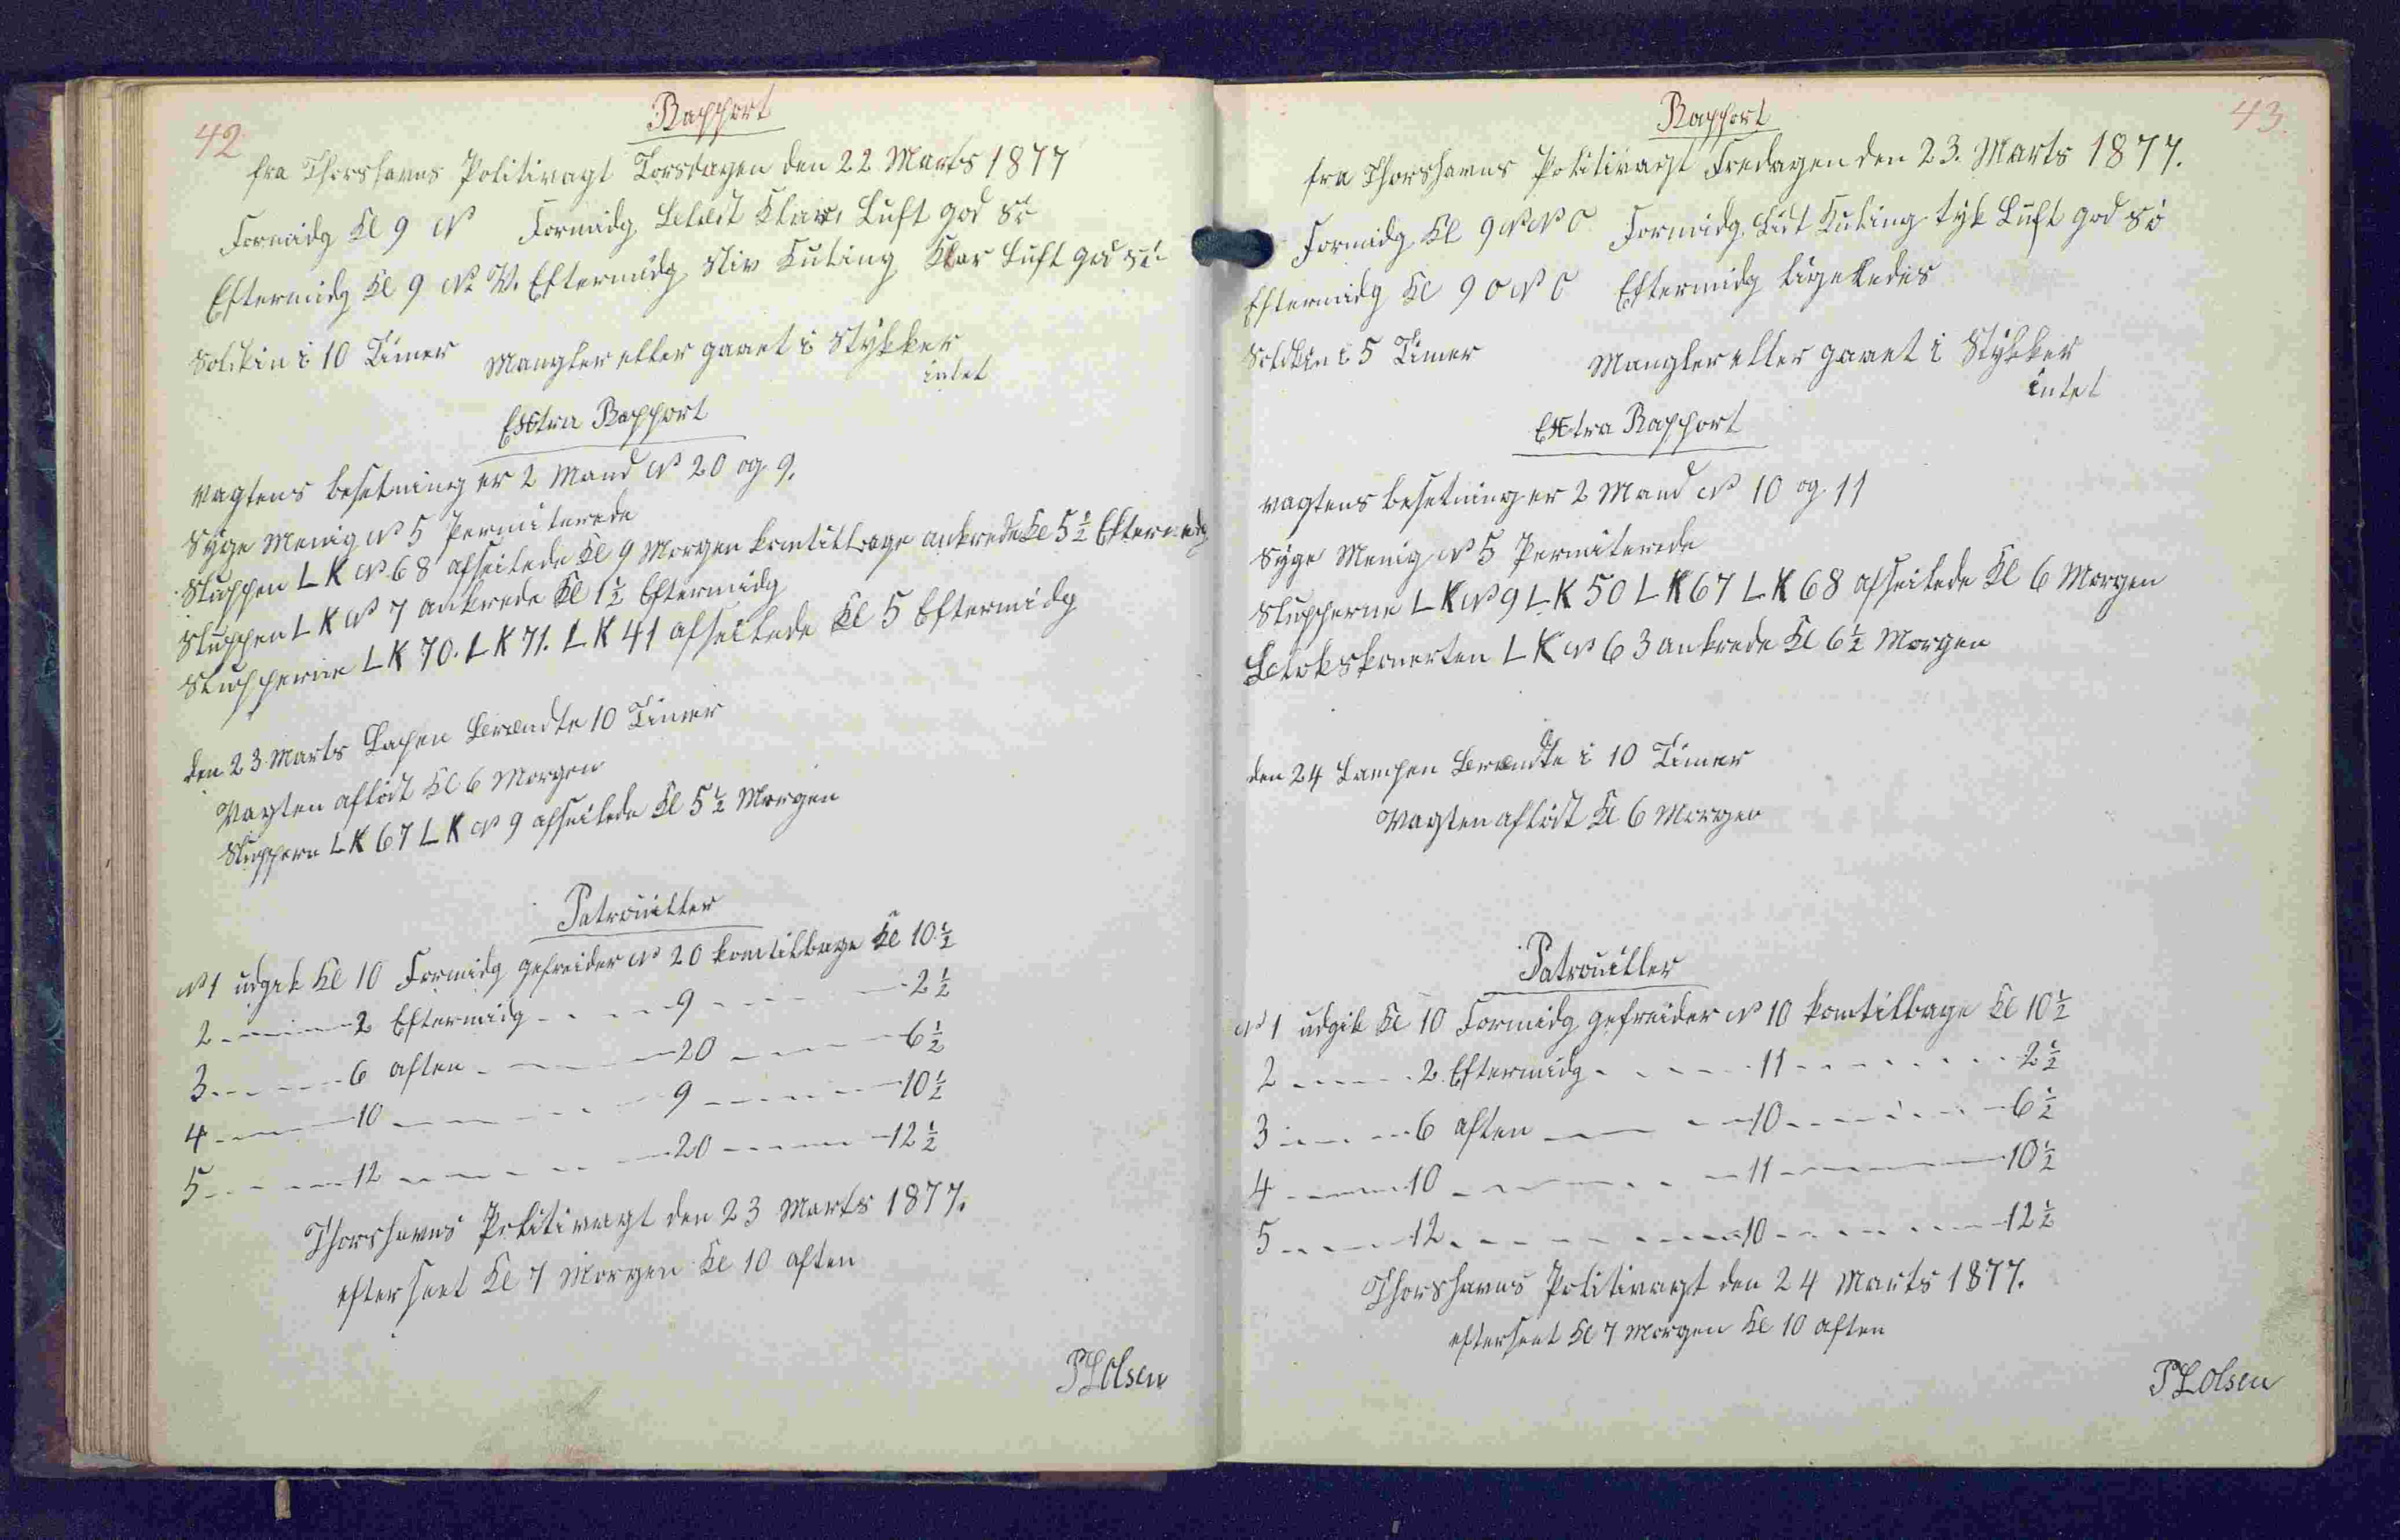 42
Rapport
fra Thorshavns Politivagt Torsdagen den 22 Marts 1877
Formidg Kl 9 N Formidg Blæst Klar Luft god Sö
Eftermidg Kl 9 N V. Eftermidg Stiv Kuling Klar Luft god Sö
Solskin i 10 Timer Mangler eller gaaet i Stykker
intet
Extra Rapport
Vagtens besetning er 2 Mand No 20 og 9.
Syge Menig No 5 Permiterede
Sluppen LK No 68 afseilede Kl 9 Morgen kom tilbage ankrede Kl 5 1/2 Eftermidg
Sluppen LK No 7 ankrede Kl 1 1/2 Eftermidg
Slupperne LK 70. LK 71. LK 41 afseilede Kl 5 Eftermidg
den 23 Marts Lapen Brændte 10 Timer
Vagten aflöst Kl 6 Morgen
Sluppern LK 67 LK No 9 afseilede Kl 5 1/2 Morgen
Patrouiller
No 1 udgik Kl 10 Formidg gefreider No 20 kom tilbage Kl 10 1/2
2 - - - 2 Eftermidg - - - 9 - - - 2 1/2
3 - - - 6 aften - - - 20 - - - 6 1/2
4 - - - 10 - - - 9 - - - 10 1/2
5 - - - 12 - - - 20 - - - 12 1/2
Thorshavns Politivagt den 23 Marts 1877.
efterseet Kl 7 Morgen Kl 10 aften
PLOlsen
43.
Rapport
fra Thorshavns Politivagt Fredagen den 23. Marts 1877.
Formidg Kl 9 N N O Formidg Lidt Kuling tyk Luft god Sö
Eftermidg Kl 9 O N O Eftermidg ligeledes
Solskin i 5 Timer Mangler eller gaaet i Stykker
intet
Extra Rapport
Vagtens besetning er 2 Mand No 10 og 11
Syge Menig No 5 Permiterede
Slupperne LK No 9 LK 50 LK 67 LK 68 afseilede Kl 6 Morgen
Slokskonerten LK No 63 ankrede Kl 6 1/2 Morgen
den 24 Lampen Brændte i 10 Timer
Vagten aflöst Kl 6 Morgen
Patrouiller
No 1 udgik Kl 10 Formidg gefreider No 10 kom tilbage Kl 10 1/2
2 - - - 2 Eftermidg - - - 11 - - - 2 1/2
3 - - - 6 aften - - - 10 - - - 6 1/2
4 - - - 10 - - - 11 - - - 10 1/2
5 - - - 12 - - - 10 - - - 12 1/2
Thorshavns Politivagt den 24 Marts 1877.
efterseet Kl 7 Morgen Kl 10 aften
PLOlsen